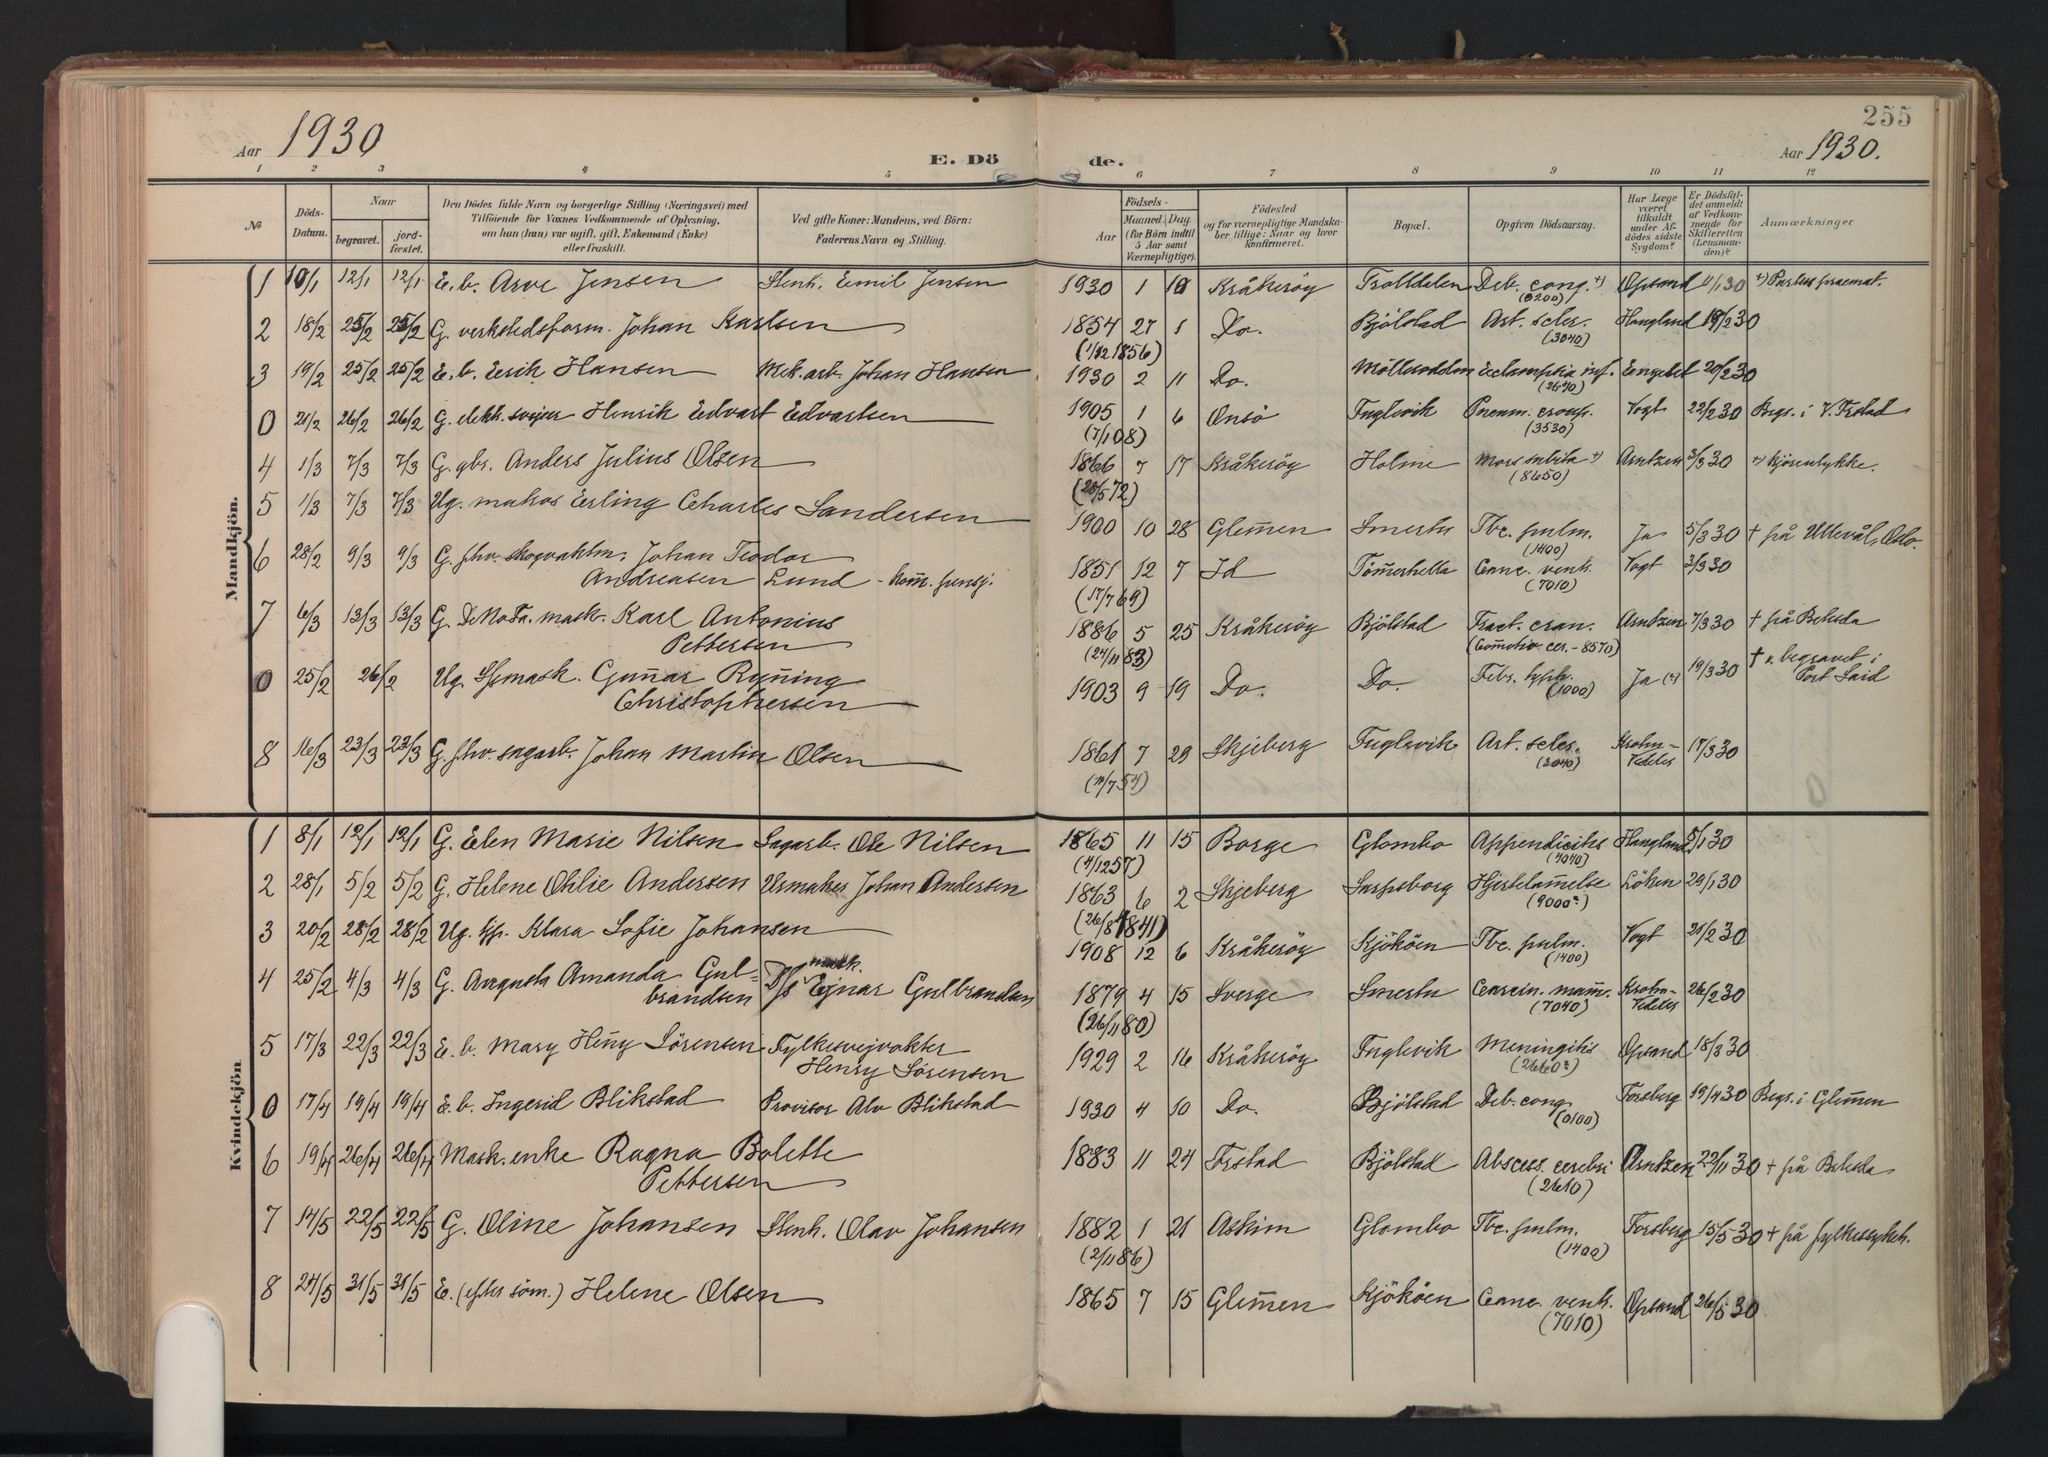 255
Aar 1930
E. Dö
de.
Aar 1930.
1 2 3 4 5 6 7 8 9 10 11 12
No
Döds-
Datum.
Naar
begravet.
jord-
fæstet.
Den Dödes fulde Navn og borgerlige Stilling (Næringsvei) med
Tilföiende for Voxnes Vedkommende af Oplysning,
om hun (han) var ugift, gift, Enkemand (Enke)
eller fraskilt.
Ved gifte Koner: Mandens, ved Börn:
Faderens Navn og Stilling.
Födsels-
Aar
Maaned. Dag.
(for Börn indtil
5 Aar samt
Værnepligtige).
Födested
og for værnepligtige Mandska-
ber tillige: Naar og hvor
konfirmeret.
Bopæl.
Opgiven Dödsaarsag.
Har Læge
været
tilkaldt
under Af-
dödes sidste
Sygdom?
Er Dödsfal-
det anmeldt
af Vedkom-
mende for
Skifteretten
(Lensman-
den)?
Anmærkninger
Mandkjön.
1 10/1 12/1 12/1 E. b. Arve Jensen Stenh. Emil Jensen 1930 1 10 Kråkeröy Trolldalen Deb. cong. +) Opsand 11/1 30 +) Partus praemat.
(0200)
2 18/2 25/2 25/2 G. verkstedsform. Johan Karlsen 1854 27 1 Do. Bjölstad Art. scler. Haugland 19/2 30
(1/12 1856) (3040)
3 19/2 25/2 25/2 E. b. Erik Hansen Mek. arb. Johan Hansen 1930 2 11 Do. Möllerodden Eclampsia inf. Engebet 20/2 30
(2670)
0 21/2 26/2 26/2 G. elekk. sveiser Henrik Edvart Edvartsen 1905 1 6 Onsö Fuglevik Pneum. croup. Vogt 22/2 30 Begr. i V. Frstad
(7/1 08) (3530)
4 1/3 7/3 7/3 G. gbr. Anders Julius Olsen 1866 7 17 Kråkeröy Holme Mors subita +) Arntzen 3/3 30 +) Kjöreulykke.
(28/5 72) (8650)
5 1/3 7/3 7/3 Ug. makas Erling Charles Sandersen 1900 10 28 Glem̄en Smertu Tbc. pulm. Ja 5/3 30 + på Ullevål, Oslo.
(1400)
6 28/2 9/3 9/3 G. fhv. skogvaktm. Johan Teodor
Andreasen Lund - kom̄. pensj. 1851 12 7 Id Töm̄erhella Canc. ventr. Vogt 3/3 30
(17/7 69) (7010)
7 6/3 13/3 13/3 G. DeNoFa. mask. Karl Antonius
Pettersen 1886 5 25 Kråkeröy Bjölstad Fract. cran. Arntzen 7/3 30 + på Betesda
(24/11 83) (Com̄otio cer. - 8570)
0 25/2 26/2 Ug. Spmask. Gun̄ar Ryn̄ing
Christophersen 1903 9 19 Do. Do. Febr. typh. Ja (?) 19/3 30 + o. begravet i
(1000) Port Said
8 16/3 23/3 23/3 G. fhv. sagarb. Johan Martin Olsen 1861 7 29 Skjeberg Fuglevik Art. scler. Krohn-
Vedeler 17/3 30
(3040)
Kvindekjön
1 8/1 12/1 12/1 G. Elen Marie Nilsen Sagarb. Ole Nilsen 1865 11 15 Borge Glombo Appendicitis Haugland 5/1 30
(4/12 57) (4040)
2 28/1 5/2 5/2 G. Helene Otilie Andersen Urmaker Johan Andersen 1863 6 2 Skjeberg Sarpsborg Hjertelam̄else Löken 29/1 30
(9000a)
3 20/2 28/2 28/2 Ug. tjp. Klara Sofie Johansen 1908 12 6 Kråkeröy Kjököen Tbc. pulm. Vogt 21/2 30
(1400)
4 25/2 4/3 4/3 G. Augusta Amanda Gul-
brandsen D/s mask. Ejnar Gulbrandsen 1879 4 15 Sverge Smertu Carcin. mam̄. Krohn-
Vedeler 26/2 30
(26/11 80) (7040)
5 17/3 22/3 22/3 E. b. Mary Hen̄y Sörensen Fylkesveivokter
Henry Sörensen 1929 2 16 Kråkeröy Fuglevik Meningitis Opsand 18/3 30
(2660a)
0 17/4 19/4 19/4 E. b. Ingerid Blikstad Provisor Alv Blikstad 1930 4 10 Do. Bjölstad Deb. cong. Forsberg 19/4 30 Begr. i Glem̄en
(0100)
6 19/4 26/4 26/4 Mask. enke Ragna Bolette
Pettersen 1883 11 24 Frstad Bjölstad Abscess. cerebri Arntzen 22/11 30 + på Betesda
(2610)
7 14/5 22/5 22/5 G. Oline Johansen Stenh. Olav Johansen 1882 1 21 Askim Glombo Tbc. pulm. Forsberg 15/5 30 + på fylkessykeh.
(2/11 86) (1400)
8 24/5 31/5 31/5 E. (efter söm.) Helene Olsen 1865 7 15 Glem̄en Kjököen Canc. ventr. Opsand 26/5 30
(7010)